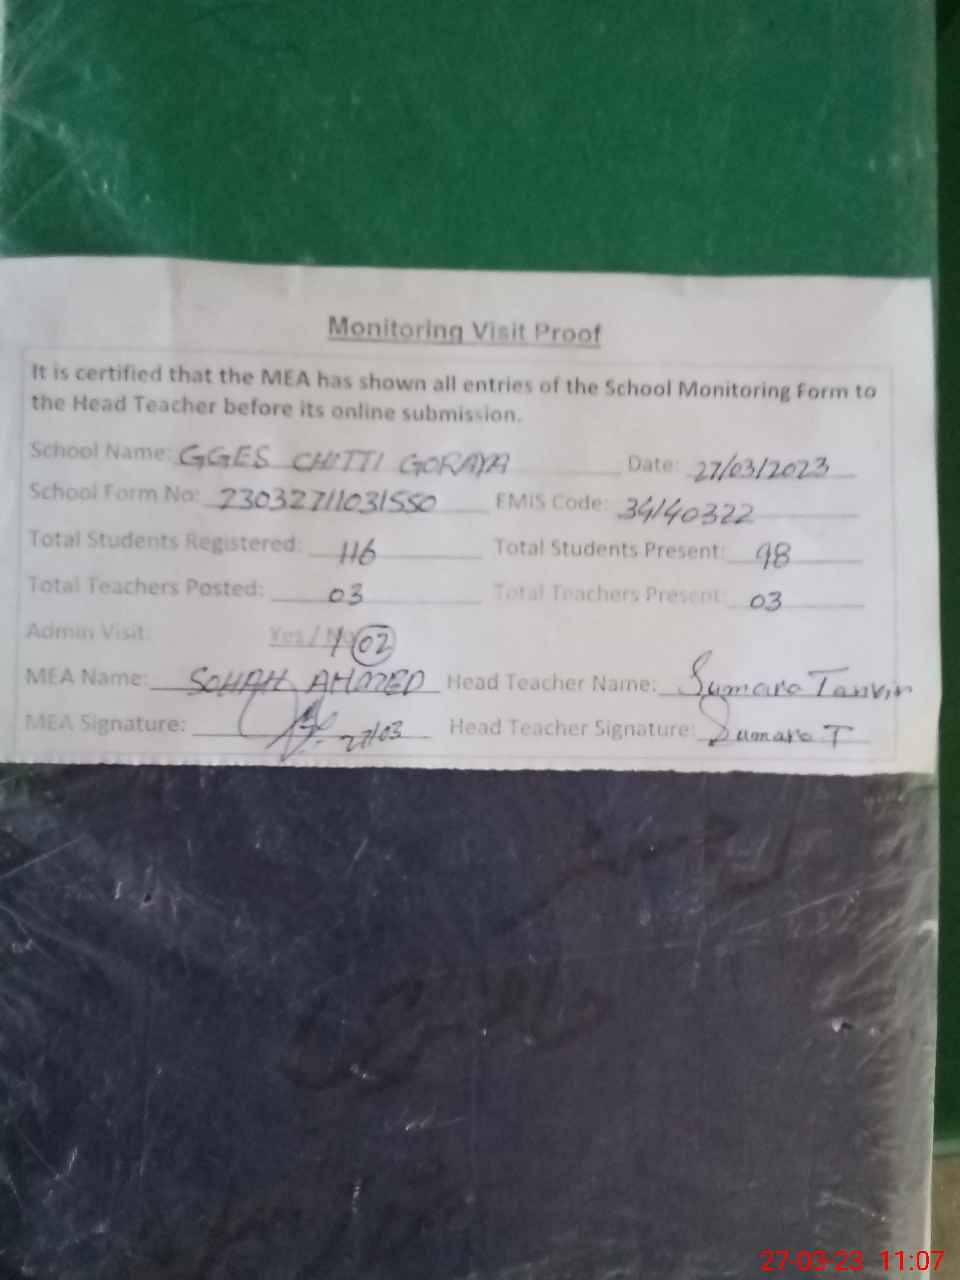 Monitoring Visit Proof
It is certified that the MEA has shown all entries of the School Monitoring Form to
the Head Teacher before its online submission.
School Name: GGES CHITTI GORAYA Date: 27/03/2023
School Form No: 23032711031550 EMIS Code: 34140322
Total Students Registered: 116 Total Students Present: 98
Total Teachers Posted: 03 Total Teachers Present: 03
Admin Visit: Yes / No 02
MEA Name: AHMED Head Teacher Name: Sumara Tanvir
MEA Signature: 27/03 Head Teacher Signature: Sumara T
27-03-23 11:07